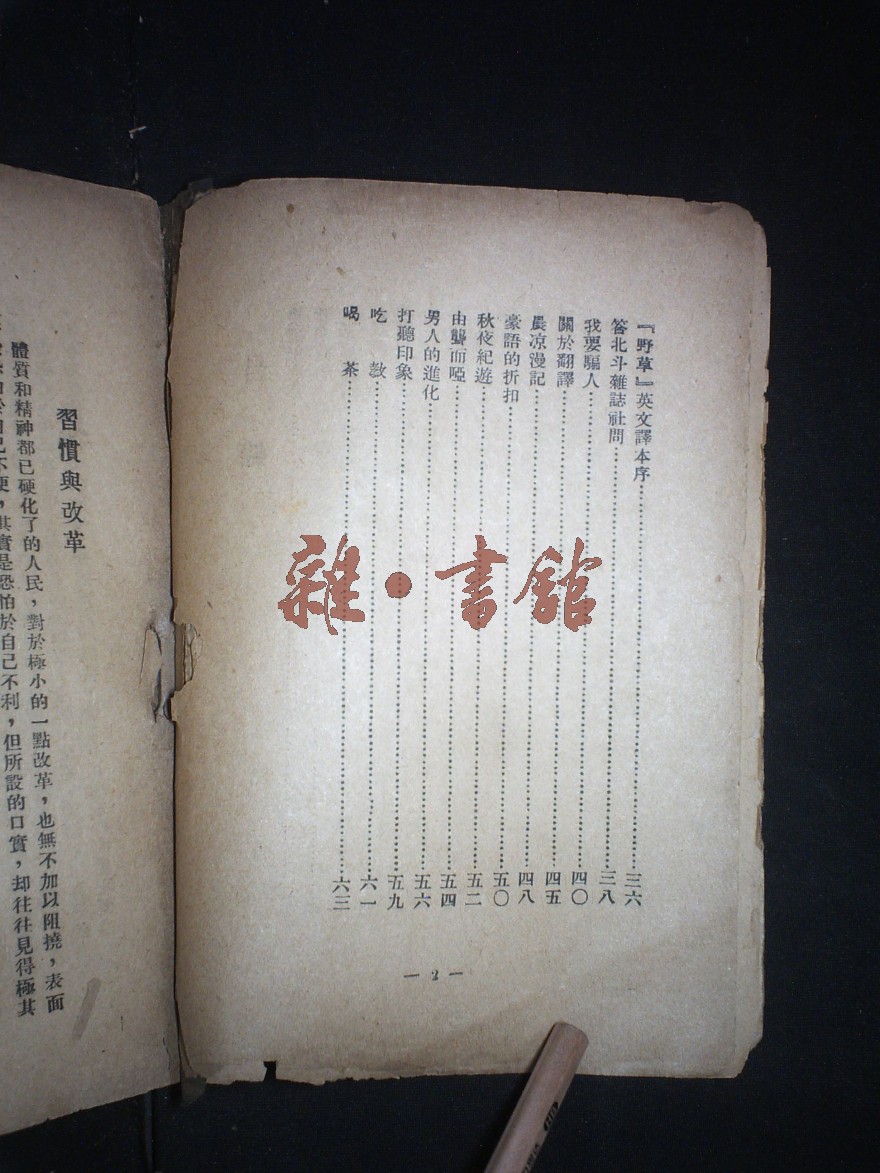 『野草』英文譯本序……三六
答北斗雜誌社問……三八
我要騙人……四〇
關於翻譯……四五
晨凉漫記……四八
豪語的折扣……五〇
秋夜紀遊……五二
由聾而啞……五四
男人的進化……五六
打聽印象……五九
吃 教……六一
喝 茶……六三
— 2 —
習慣與改革
體質和精神都已硬化了的人民，對於極小的一點改革，也無不加以阻撓，表面
於自己不便，其實是恐怕於自己不利，但所設的口實，却往往見得極其
雜·書館